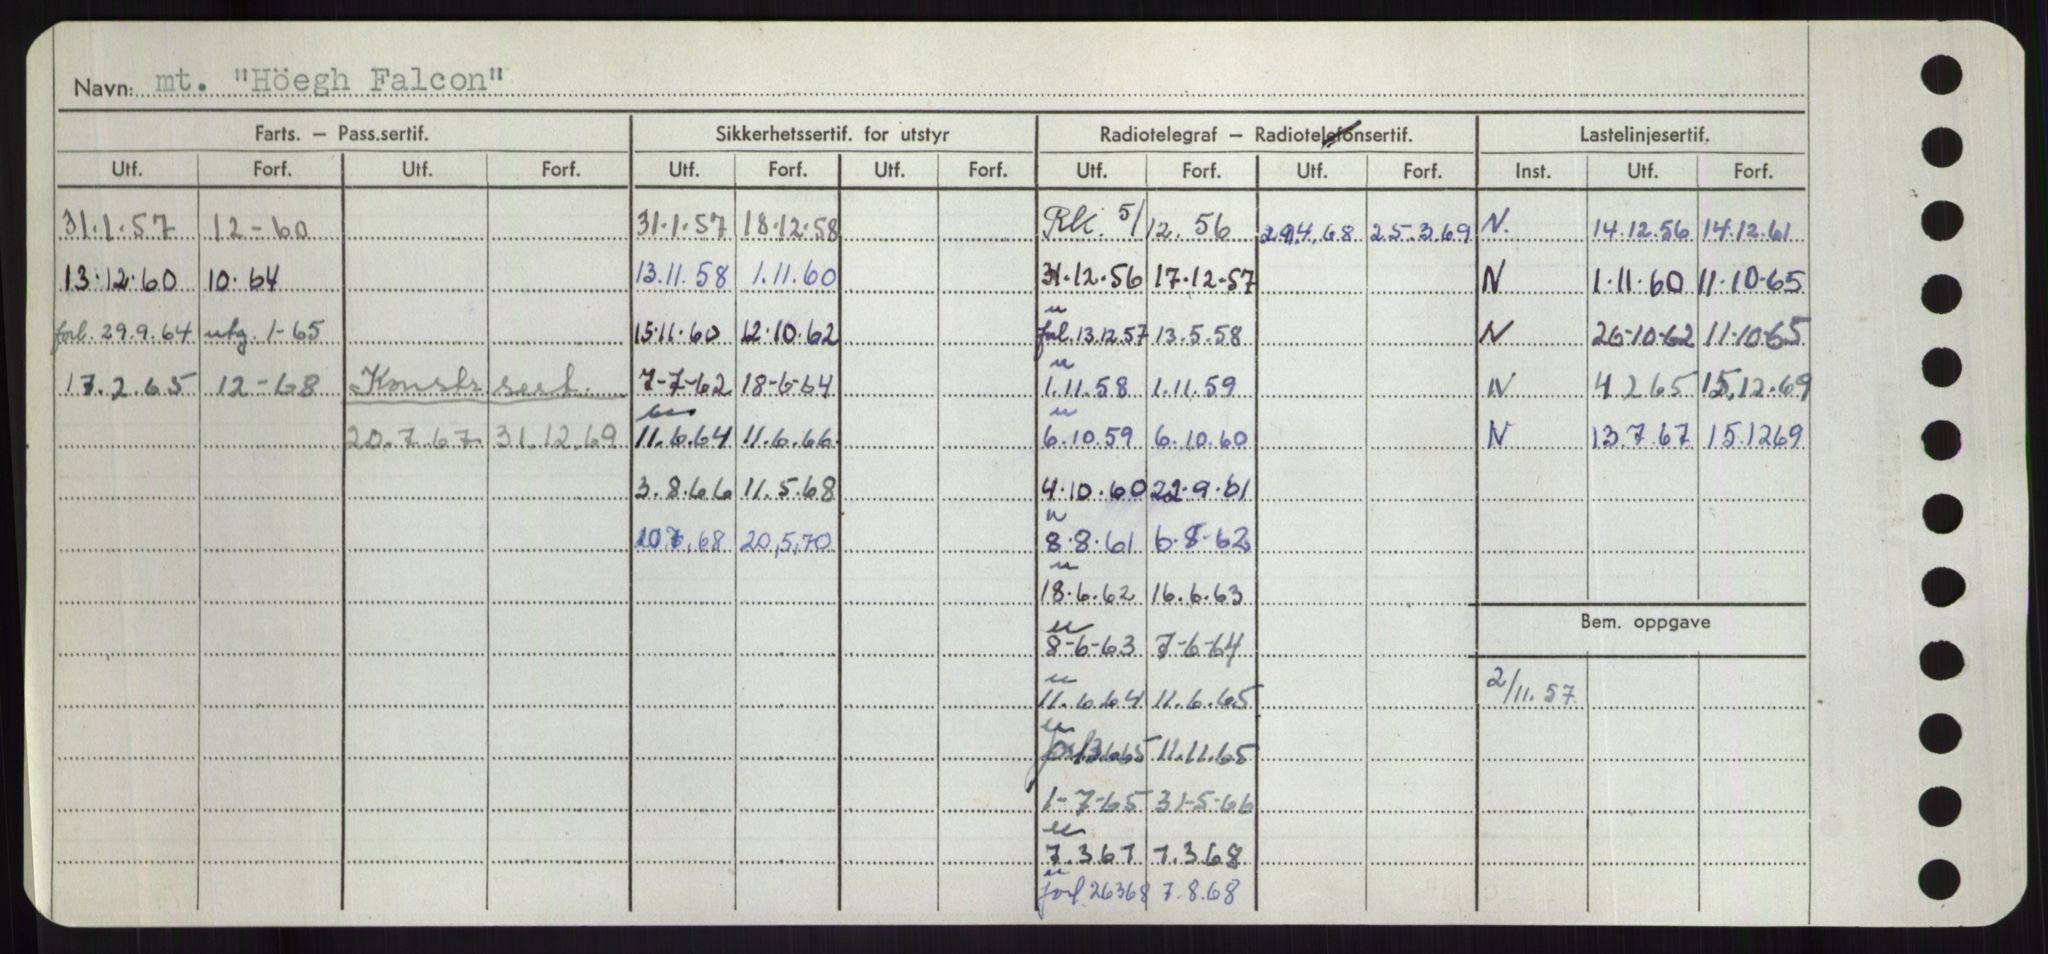 Navn: mt. "Höegh Falcon"
Farts. – Pass.sertif. Sikkerhetssertif. for utstyr Radiotelegraf – Radiotelefonsertif. Lastelinjesertif.
Utf. Forf. Utf. Forf. Utf. Forf. Utf. Forf. Utf. Forf. Utf. Forf. Inst. Utf. Forf.
31.1.57 12-60 31.1.57 18.12.58 Rlk. 5/12.56 29.4.68 25.3.69 N. 14.12.56 14.12.61
13.12.60 10.64 13.11.58 1.11.60 31.12.56 17.12.57 N 1.11.60 11.10.65
forl. 29.9.64 utg. 1-65 15.11.60 12.10.62 forl. 13.12.57 13.5.58 N 26-10-62 11.10.65
17.2.65 12-68 Konstr sert. 7-7-62 18-6-64 1.11.58 1.11.59 N 4 2 65 15.12.69
20.7.67 31.12.69 11.6.64 11.6.66 6.10.59 6.10.60 N 13.7.67 15.1269
3.8.66 11.5.68 4.10.60 22.9.61
20,5,70 8.8.61 6.8-62
18.6.62 16.6.63
Bem. oppgave
8-6-63 7-6-64
11.6.64 11.6.65 2/11.57
forl. 13.6.65 11.11.65
1-7-65 31-5-66
7.3 67 7.3 68
forl. 26368 7.8.68